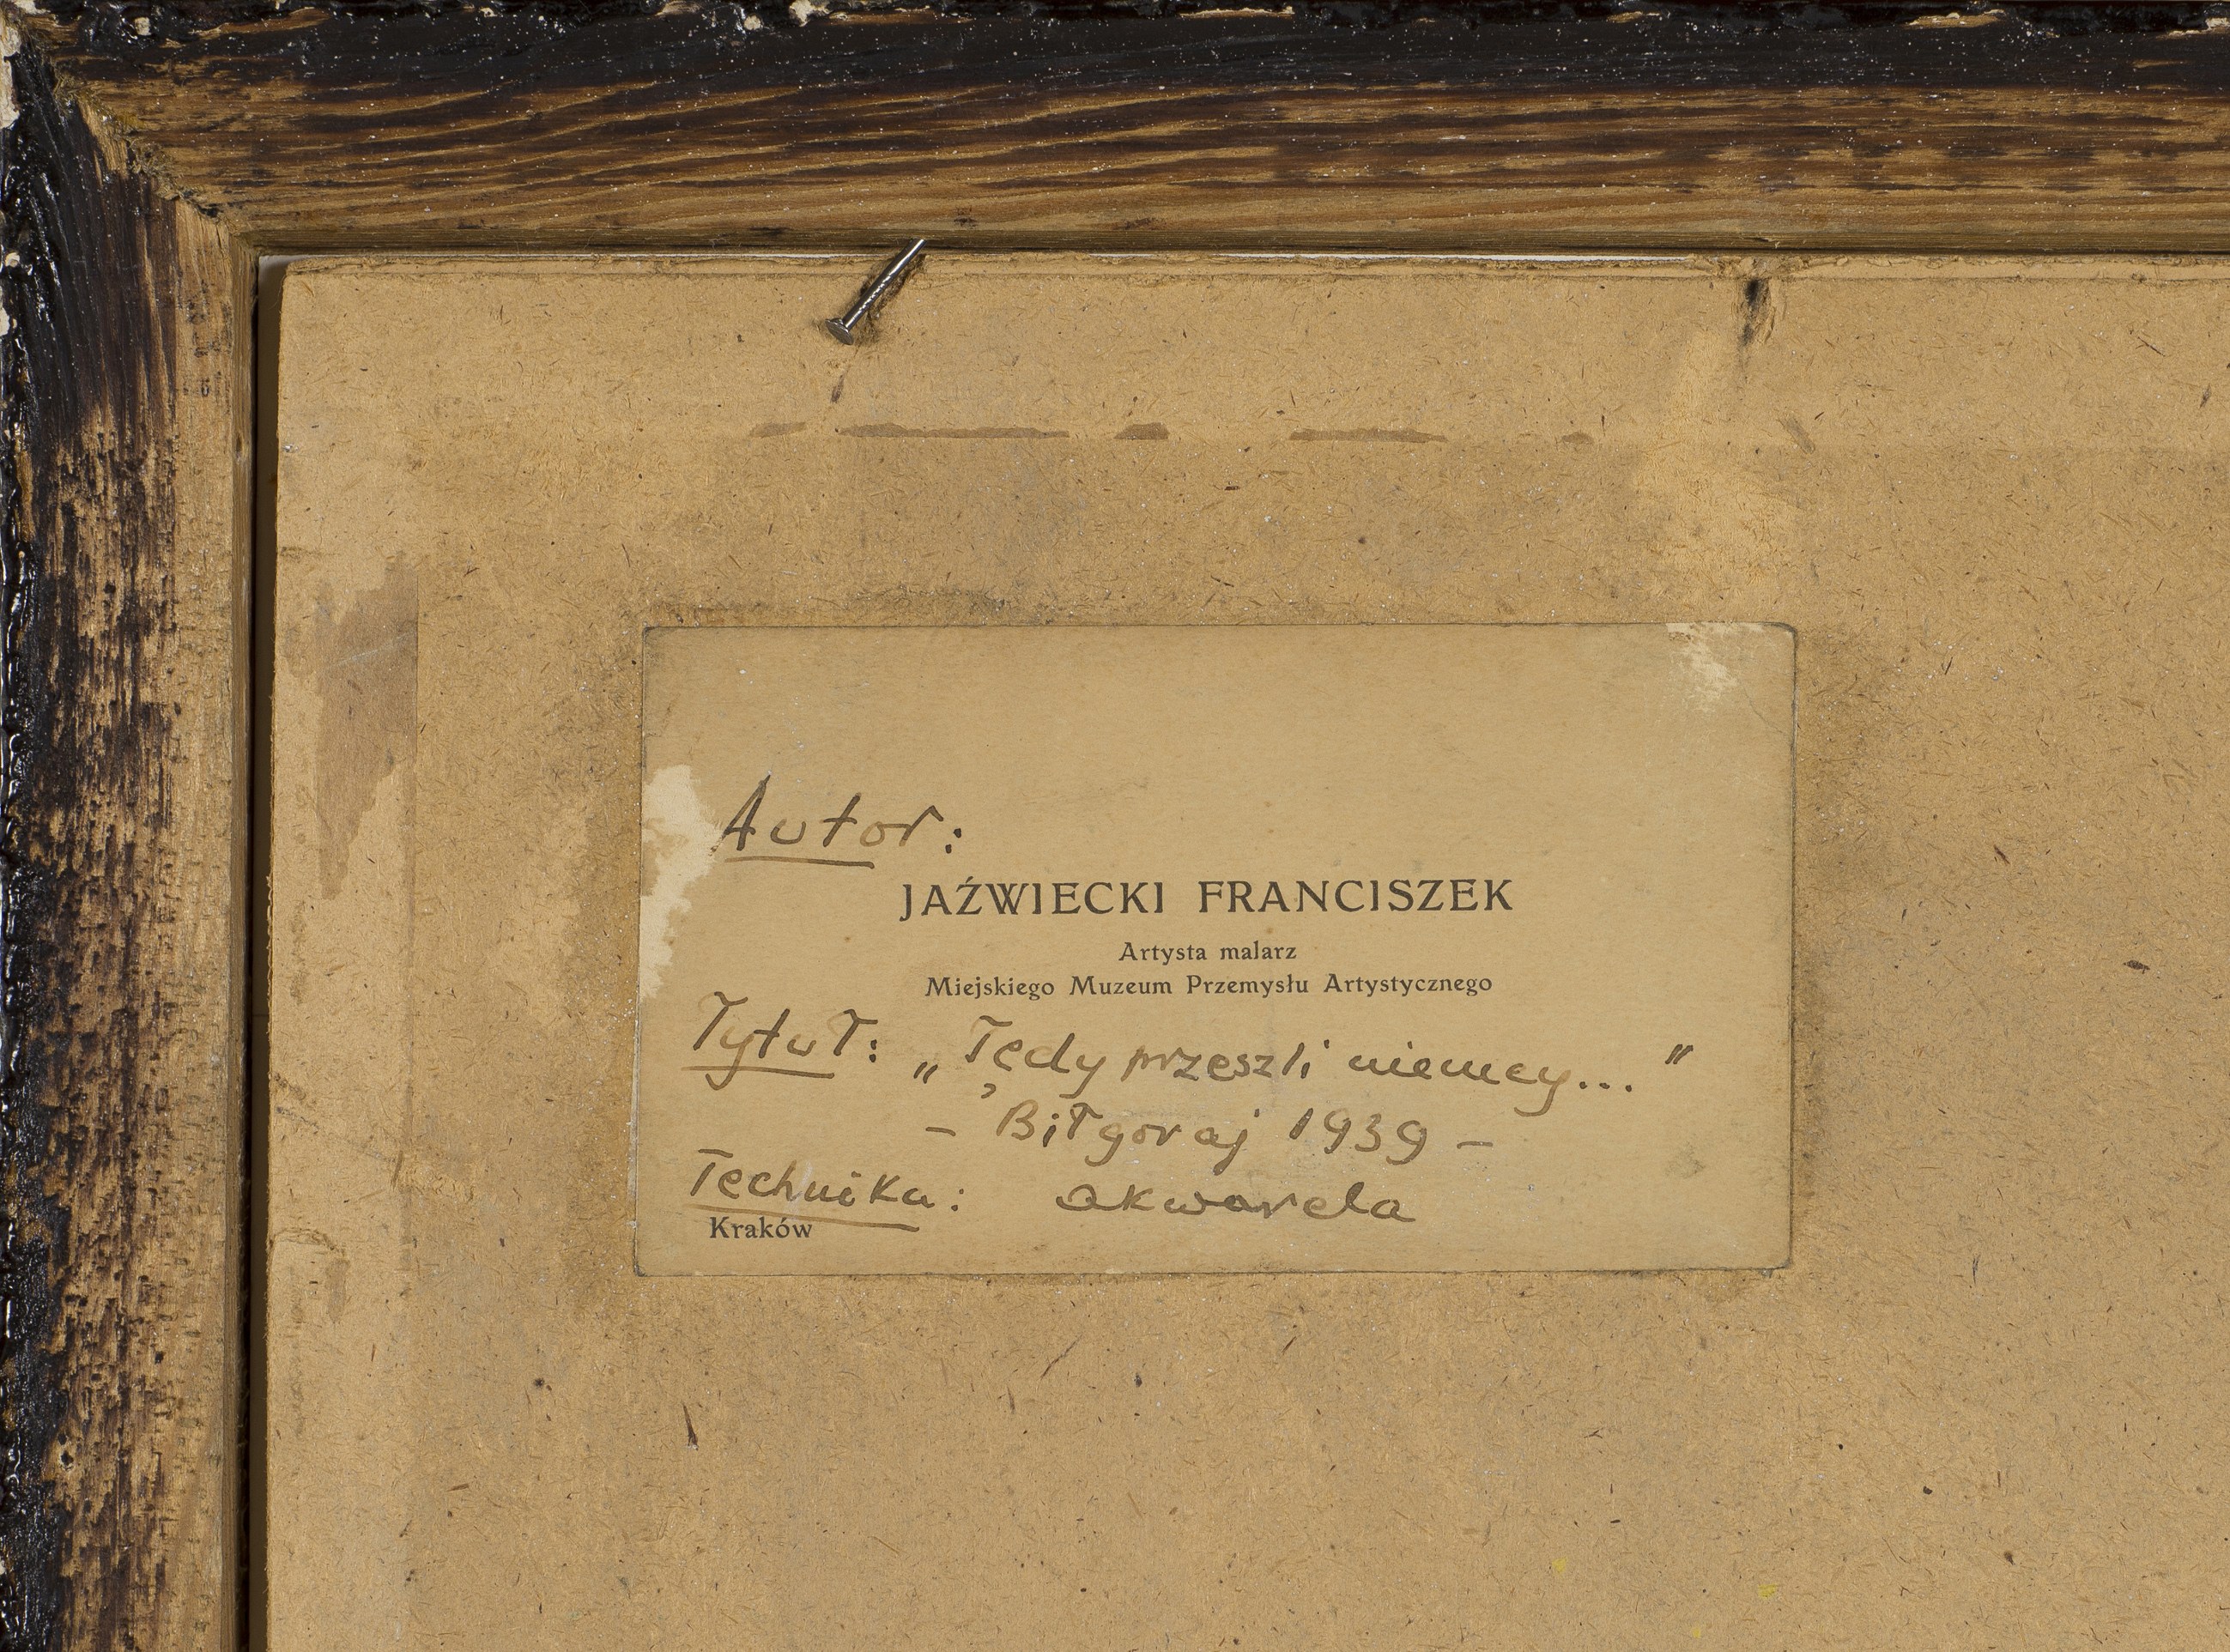 Autor:
JAŹWIECKI FRANCISZEK
Artysta malarz
Miejskiego Muzeum Przemysłu Artystycznego
Tytuł: „Tędy przeszli niemcy..."
- Biłgoraj 1939 -
Technika: akwarela
Kraków